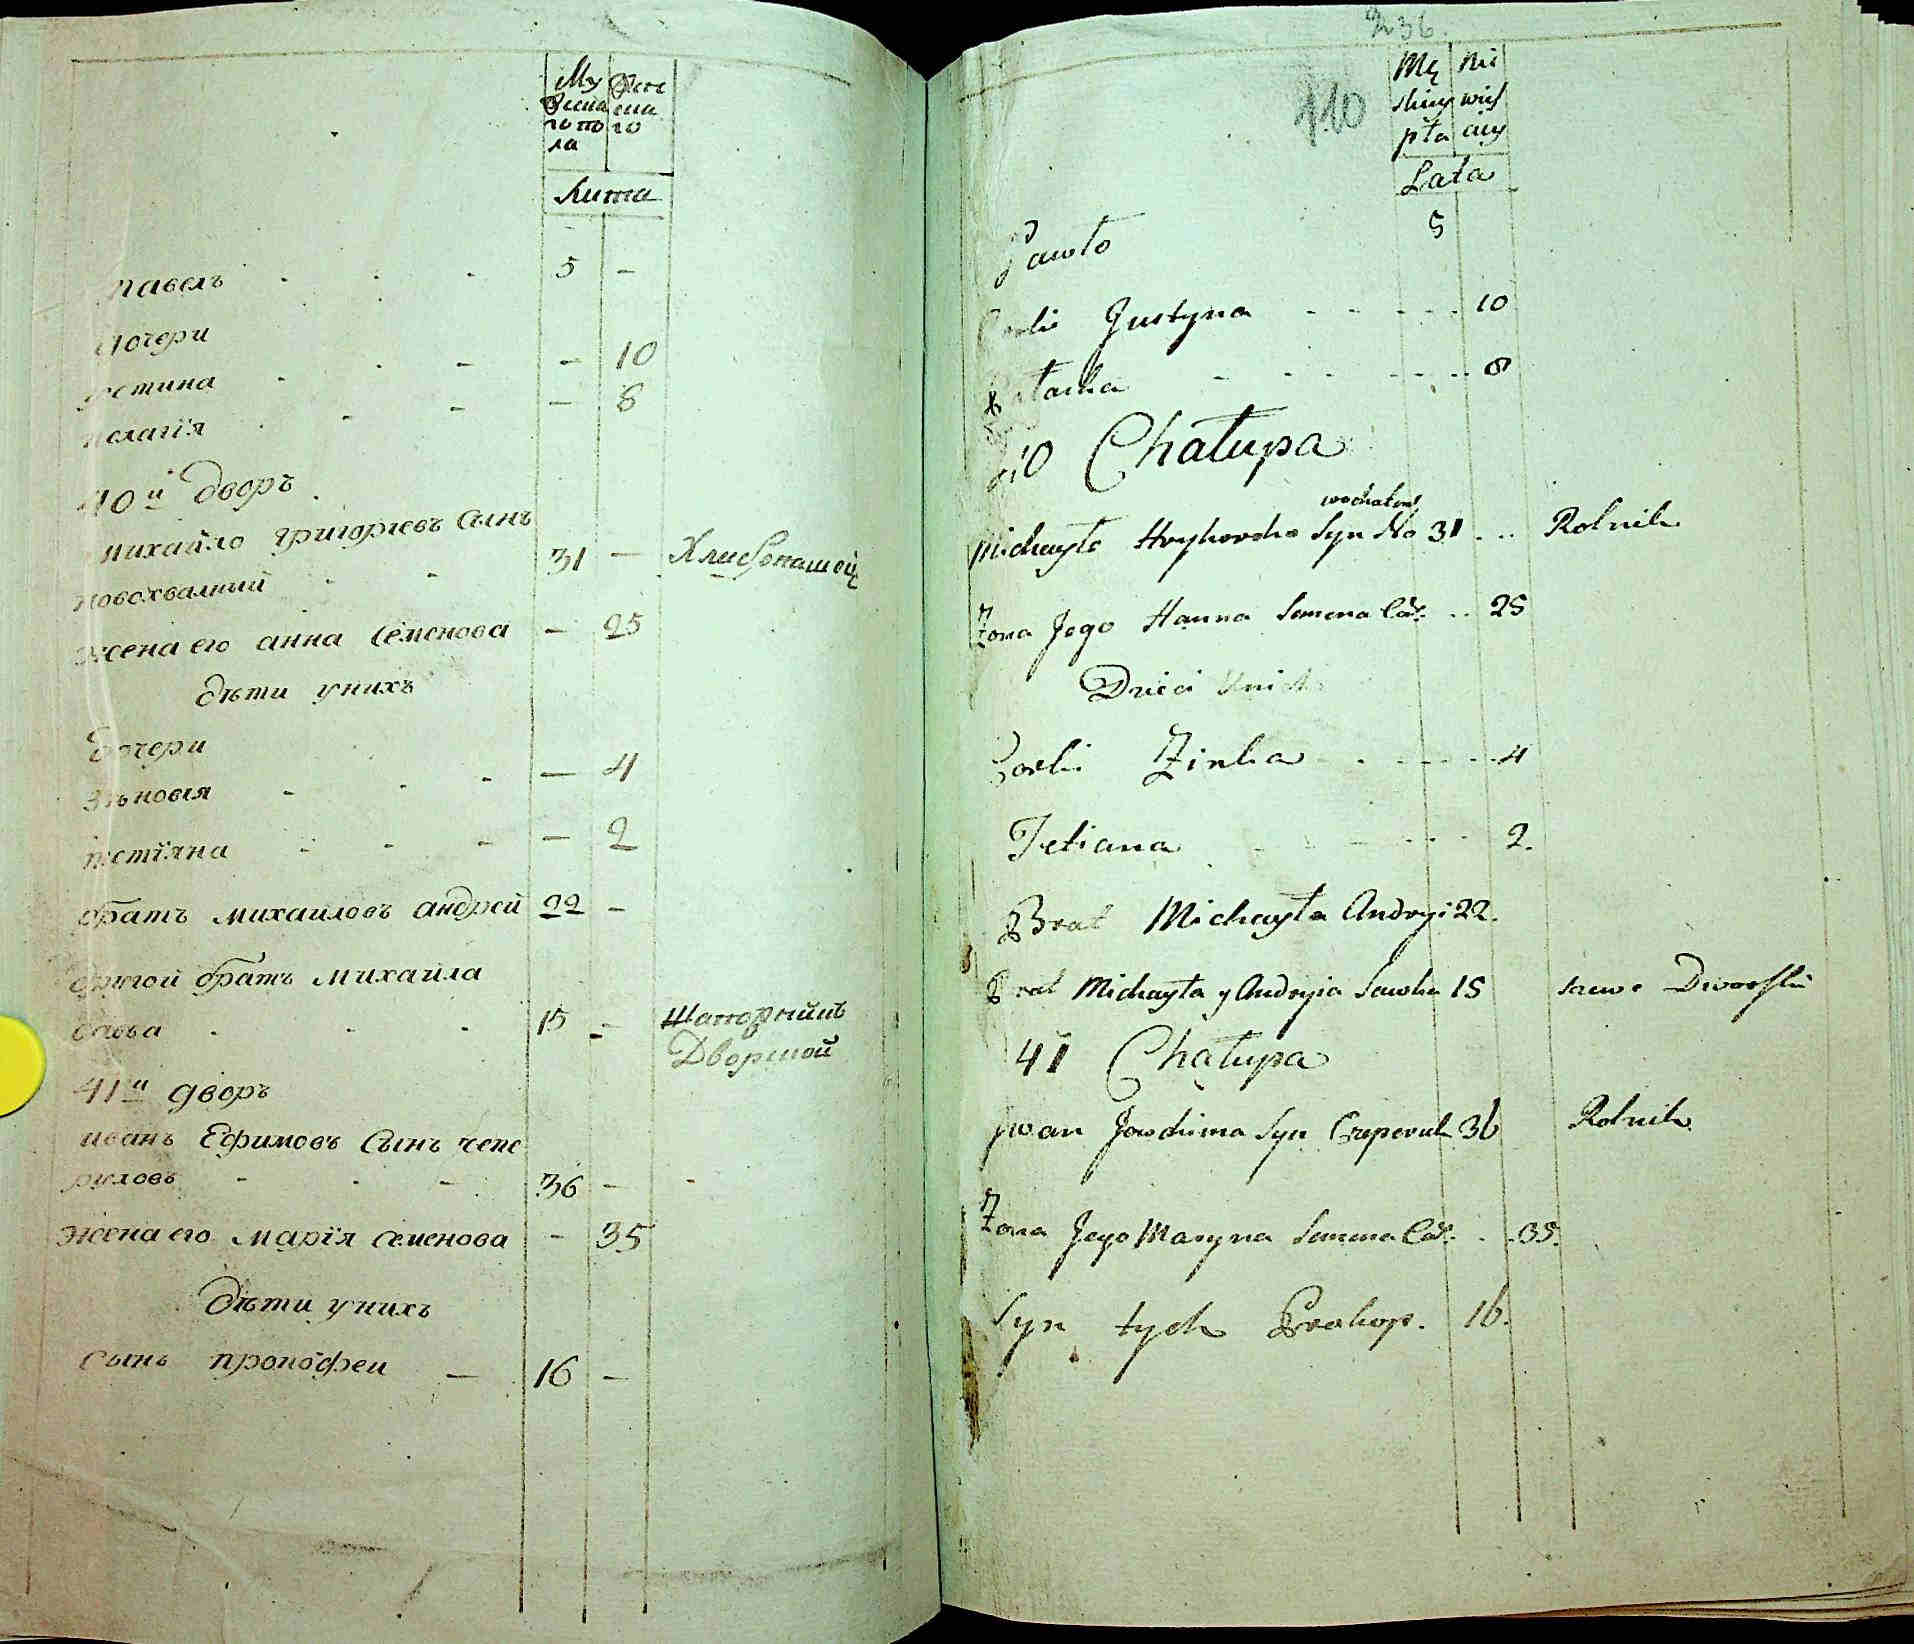 Му Жен
жеска ска
го по го
ла
Лита
павелъ - - - 5 -
дочери
устина - - - - 10
пелагія - - - 8
40й дворъ
михайло григориевъ сынъ
новохвалный - - 31 - Хлибопашецъ
жена его анна семенова - 25
дѣти унихъ
дочери
зѣновія - - - - 4
тетіяна - - - - 2
братъ михайловъ андрей 22 -
другой братъ михайла
савва - - - 15 -
Дворской
41й дворъ
иванъ Ефимовъ сынъ чепе
риловъ - - - 36 - -
жена его марія семенова - 35
дѣти унихъ
сынъ прокофеи - 16 -
236.
40
Mę Nie
skiey wieś
płci ciey
Lata
Pawło 5
Corki Justyna - - - - - 10
- - - - - - 8
40 Chałupa
Michayło Hryhorcha Syn No 31 . . . Rolnik
wochalny
Żona Jego Hanna Semena Cór: . . 25
Dzieci Unich
Corki Zinka - - - - - 4
Tetiana - - - - - 2.
Brat Michayła Andryi 22.
Brat Michayła y Andryia Sawka 15 szewc Dworski
41 Chałupa
Jwan Jawchima Syn Czeperuk 36 Rolnik
Żona Jego Maryna Semena Cór. . . 35.
Syn tych Prokop. 16.